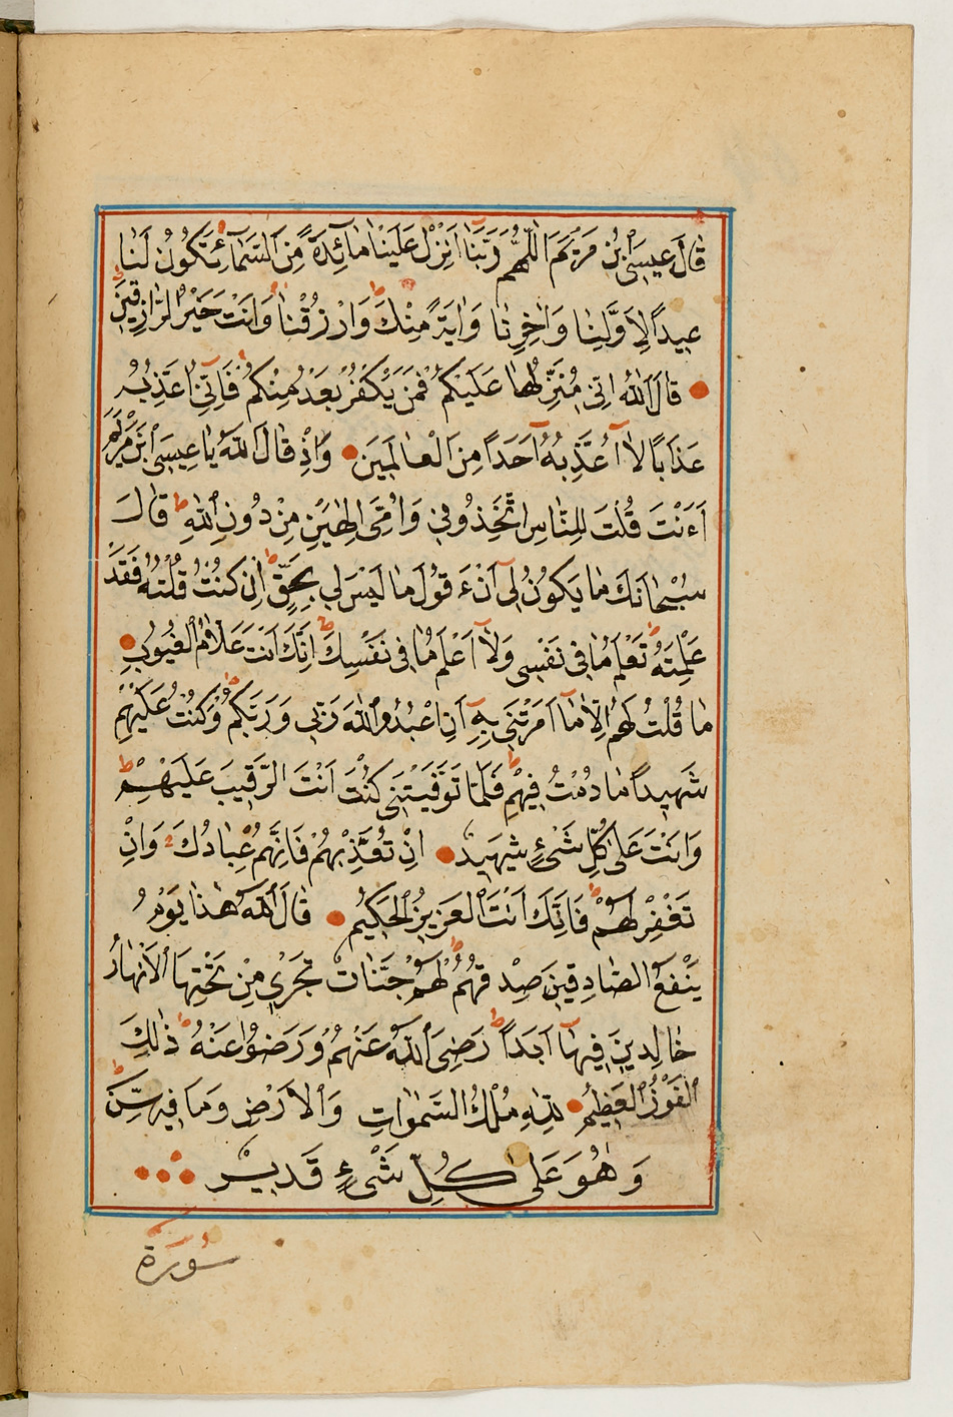 قَالَ عِيسَى ابْنُ مَرْيَمَ اللّٰهُمَّ رَبَّنَا اَنْزِلْ عَلَيْنَا مَآئِدَةً مِنَ السَّمَآءِ تَكُونُ لَنَا
عِيدًا لِاَوَّلِنَا وَاٰخِرِنَا وَاٰيَةً مِنْكَ وَارْزُقْنَا وَاَنْتَ خَيْرُ الرَّازِقِينَ
قَالَ اللّٰهُ اِنِّى مُنَزِّلُهَا عَلَيْكُمْ فَمَنْ يَكْفُرْ بَعْدُ مِنْكُمْ فَاِنِّى اُعَذِّبُهُ
عَذَابًا لَآ اُعَذِّبُهُ اَحَدًا مِنَ الْعَالَمِينَ وَاِذْ قَالَ اللّٰهُ يَا عِيسَى ابْنَ مَرْيَمَ
ءَاَنْتَ قُلْتَ لِلنَّاسِ اتَّخِذُونِى وَاُمِّىَ اِلٰهَيْنِ مِنْ دُونِ اللّٰهِ قَالَ
سُبْحَانَكَ مَا يَكُونُ لِىٓ اَنْ اَقُولَ مَا لَيْسَ لِى بِحَقٍّ اِنْ كُنْتُ قُلْتُهُ فَقَدْ
عَلِمْتَهُ تَعْلَمُ مَا فِى نَفْسِى وَلَآ اَعْلَمُ مَا فِى نَفْسِكَ اِنَّكَ اَنْتَ عَلَّامُ الْغُيُوبِ
مَا قُلْتُ لَهُمْ اِلَّا مَآ اَمَرْتَنِى بِهِٓ اَنِ اعْبُدُوا اللّٰهَ رَبِّى وَرَبَّكُمْ وَكُنْتُ عَلَيْهِمْ
شَهِيدًا مَا دُمْتُ فِيهِمْ فَلَمَّا تَوَفَّيْتَنِى كُنْتَ اَنْتَ الرَّقِيبَ عَلَيْهِمْ
وَاَنْتَ عَلٰى كُلِّ شَىْءٍ شَهِيدٌ اِنْ تُعَذِّبْهُمْ فَاِنَّهُمْ عِبَادُكَ وَاِنْ
تَغْفِرْ لَهُمْ فَاِنَّكَ اَنْتَ الْعَزِيزُ الْحَكِيمُ قَالَ اللّٰهُ هٰذَا يَوْمُ
يَنْفَعُ الصَّادِقِينَ صِدْقُهُمْ لَهُمْ جَنَّاتٌ تَجْرِى مِنْ تَحْتِهَا الْاَنْهَارُ
خَالِدِينَ فِيهَآ اَبَدًا رَضِىَ اللّٰهُ عَنْهُمْ وَرَضُوا عَنْهُ ذٰلِكَ
الْفَوْزُ الْعَظِيمُ لِلّٰهِ مُلْكُ السَّمٰوَاتِ وَالْاَرْضِ وَمَا فِيهِنَّ
وَهُوَ عَلٰى كُلِّ شَىْءٍ قَدِيرٌ
سُورَة